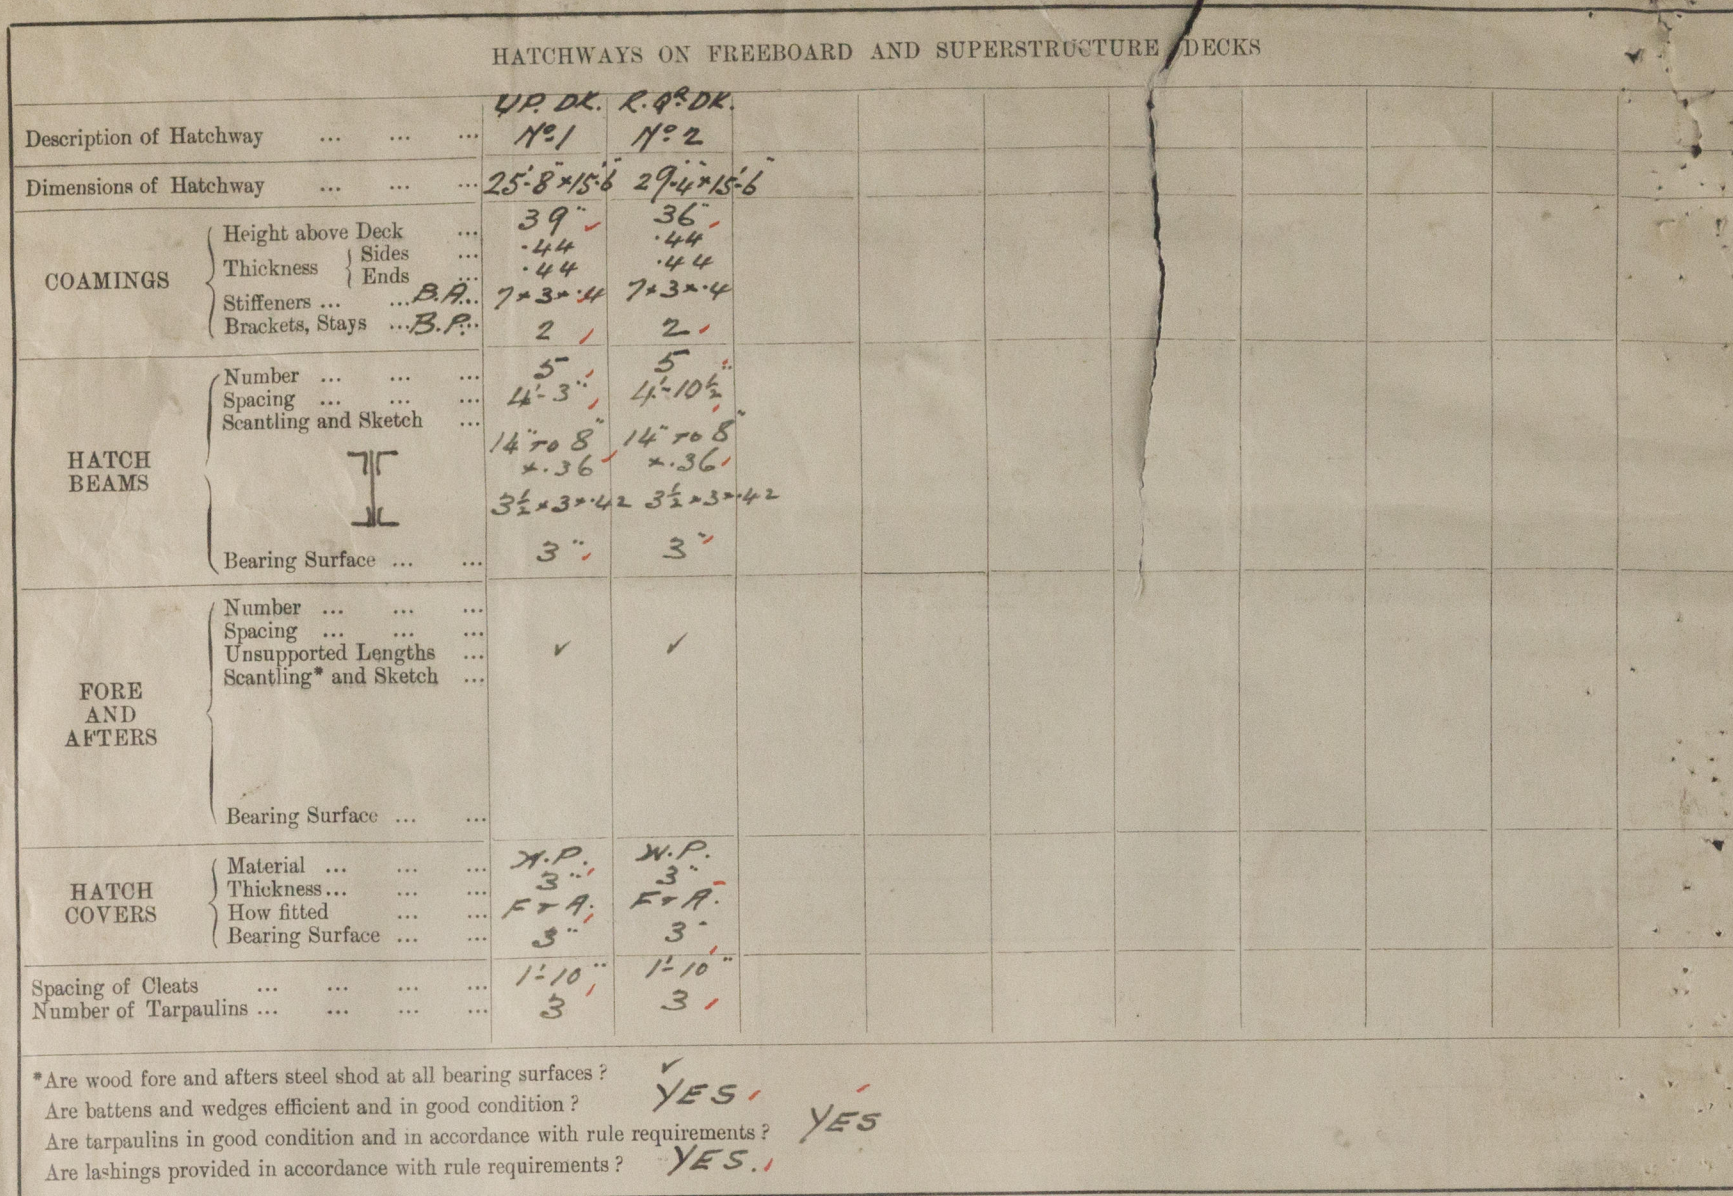 HATCHWAYS ON FREEBOARD AND SUPERSTRUCTURE DECKS
UP. DK. R. Qr. DK.
Description of Hatchway ... ... ... No 1 No 2
Dimensions of Hatchway ... ... ... 25'-8"×15'-6" 29'-4"×15'-6"
COAMINGS
Height above Deck ... 39" 36"
Thickness Sides ... .44 .44
Ends ... .44 .44
Stiffeners ... ... B.A... 7×3×.4 7×3×.4
Brackets, Stays ... B.P... 2 2
HATCH BEAMS
Number ... ... ... 5 5
Spacing ... ... ... 4'-3" 4'-10½"
Scantling and Sketch ... 14" TO 8" 14" TO 8"
×.36 ×.36
3½×3×.42 3½×3×.42
Bearing Surface ... ... 3" 3"
FORE AND AFTERS
Number ... ... ...
Spacing ... ... ...
Unsupported Lengths ... ✓ ✓
Scantling* and Sketch ...
Bearing Surface ... ...
HATCH COVERS
Material ... ... ... W.P. W.P.
Thickness... ... ... 3" 3"
How fitted ... ... F & A. F & A.
Bearing Surface ... ... 3" 3"
Spacing of Cleats ... ... ... ... 1'-10" 1'-10"
Number of Tarpaulins ... ... ... ... 3 3
*Are wood fore and afters steel shod at all bearing surfaces? ✓
Are battens and wedges efficient and in good condition? YES
Are tarpaulins in good condition and in accordance with rule requirements? YES
Are lashings provided in accordance with rule requirements? YES.